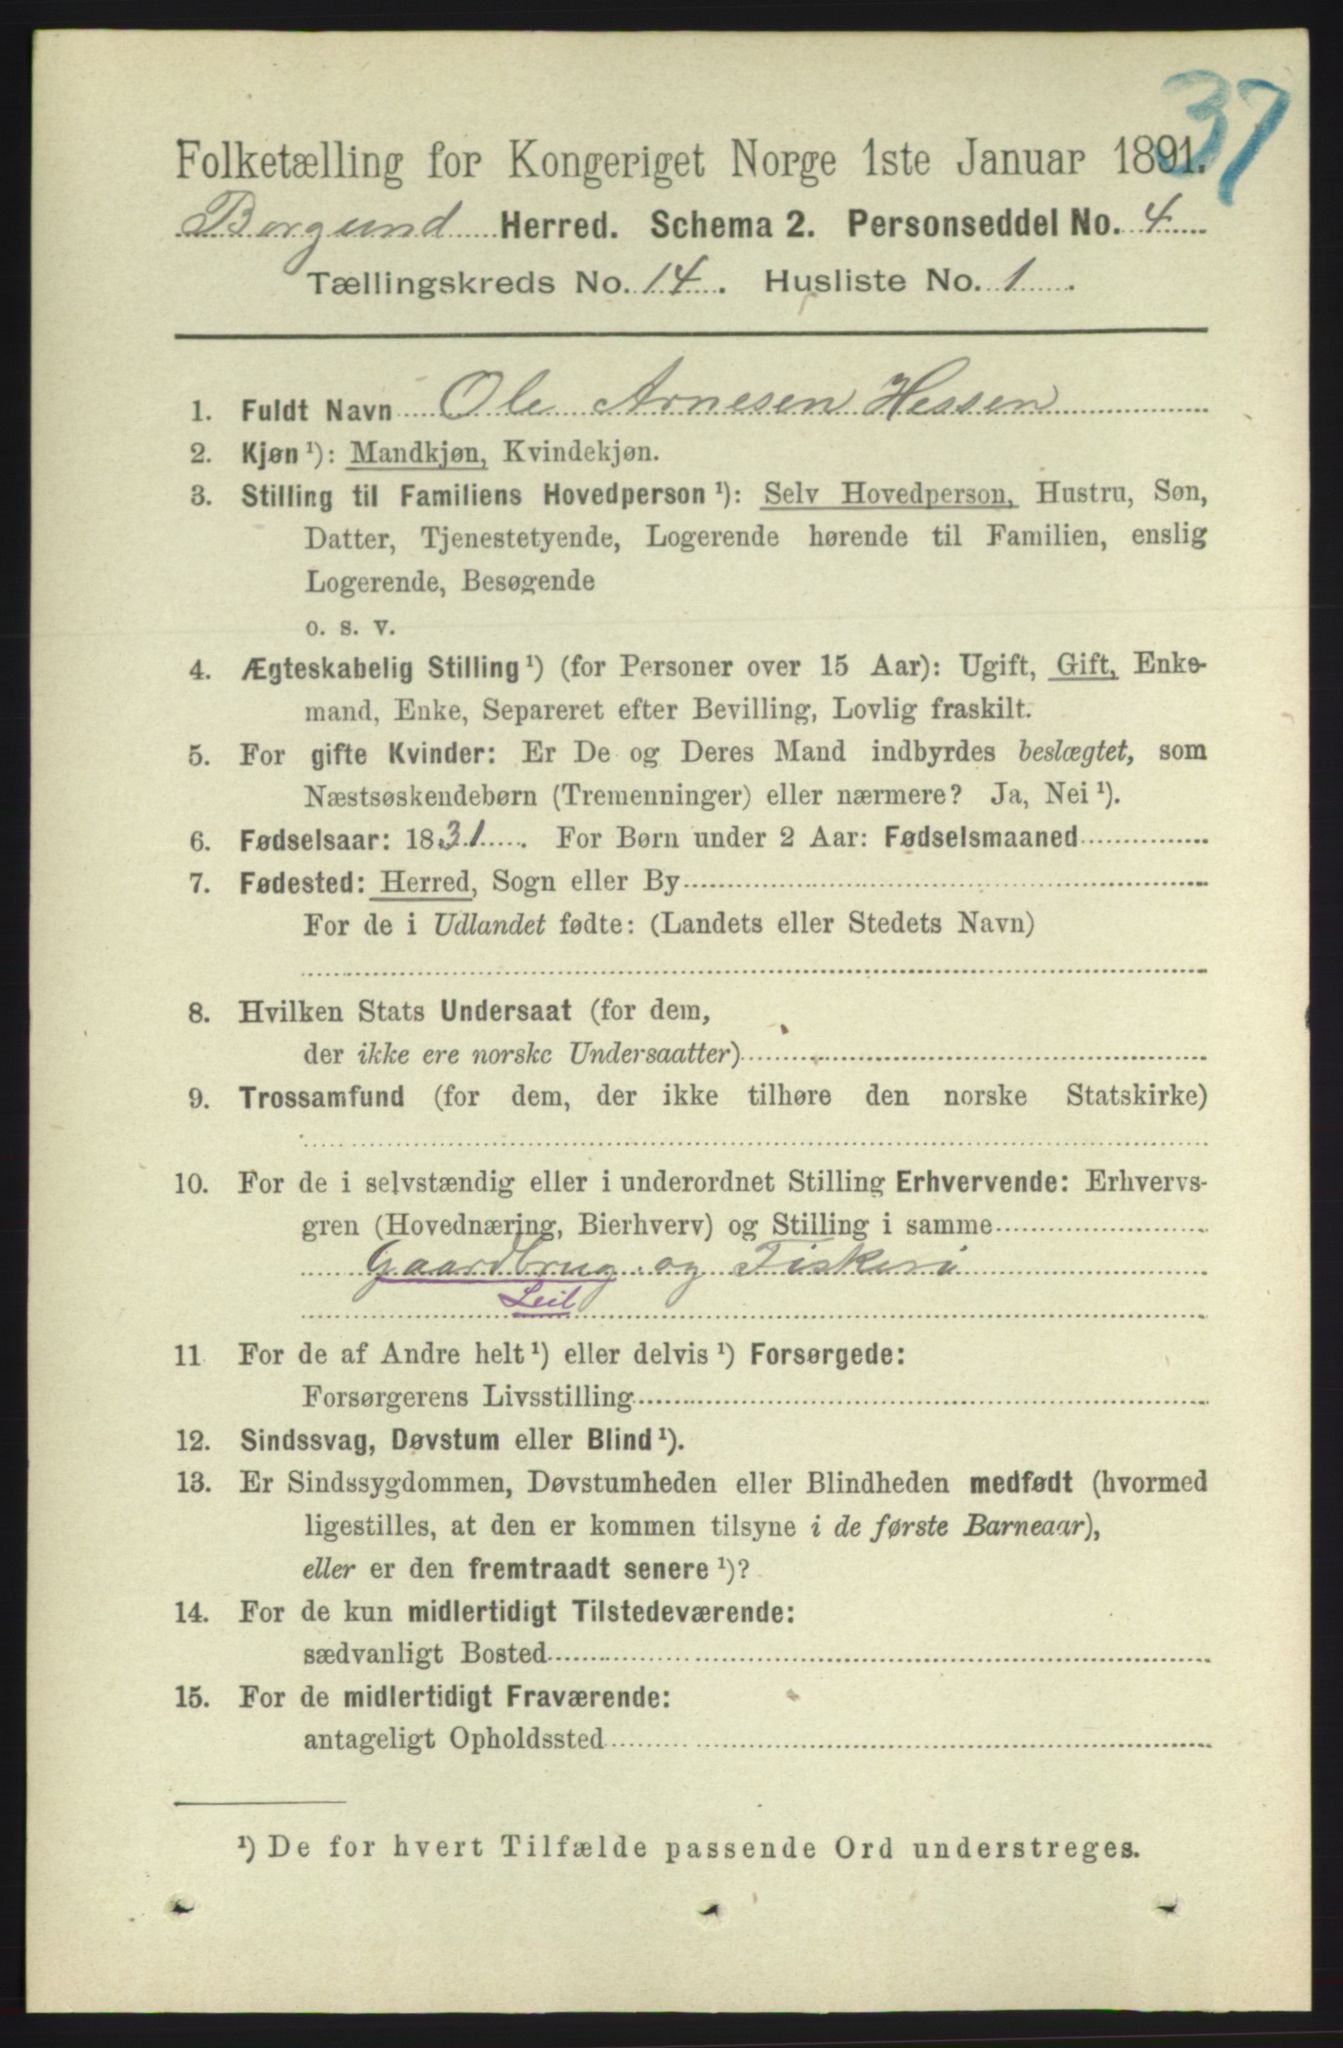 37
Folketælling for Kongeriget Norge 1ste Januar 1891.
Borgund Herred. Schema 2. Personseddel No. 4
Tællingskreds No. 14. Husliste No. 1.
1. Fuldt Navn Ole Arnesen Hessen
2. Kjøn ¹): Mandkjøn, Kvindekjøn.
3. Stilling til Familiens Hovedperson ¹): Selv Hovedperson, Hustru, Søn,
Datter, Tjenestetyende, Logerende hørende til Familien, enslig
Logerende, Besøgende
o. s. v.
4. Ægteskabelig Stilling ¹) (for Personer over 15 Aar): Ugift, Gift, Enke-
mand, Enke, Separeret efter Bevilling, Lovlig fraskilt.
5. For gifte Kvinder: Er De og Deres Mand indbyrdes beslægtet, som
Næstsøskendebørn (Tremenninger) eller nærmere? Ja, Nei ¹).
6. Fødselsaar: 1831. For Børn under 2 Aar: Fødselsmaaned
7. Fødested: Herred, Sogn eller By
For de i Udlandet fødte: (Landets eller Stedets Navn)
8. Hvilken Stats Undersaat (for dem,
der ikke ere norske Undersaatter)
9. Trossamfund (for dem, der ikke tilhøre den norske Statskirke)
10. For de i selvstændig eller i underordnet Stilling Erhvervende: Erhvervs-
gren (Hovednæring, Bierhverv) og Stilling i samme
Gaardbrug og Fiskeri
Leil
11 For de af Andre helt ¹) eller delvis ¹) Forsørgede:
Forsørgerens Livsstilling
12. Sindssvag, Døvstum eller Blind ¹).
13. Er Sindssygdommen, Døvstumheden eller Blindheden medfødt (hvormed
ligestilles, at den er kommen tilsyne i de første Barneaar),
eller er den fremtraadt senere ¹)?
14. For de kun midlertidigt Tilstedeværende:
sædvanligt Bosted
15. For de midlertidigt Fraværende:
antageligt Opholdssted
¹) De for hvert Tilfælde passende Ord understreges.